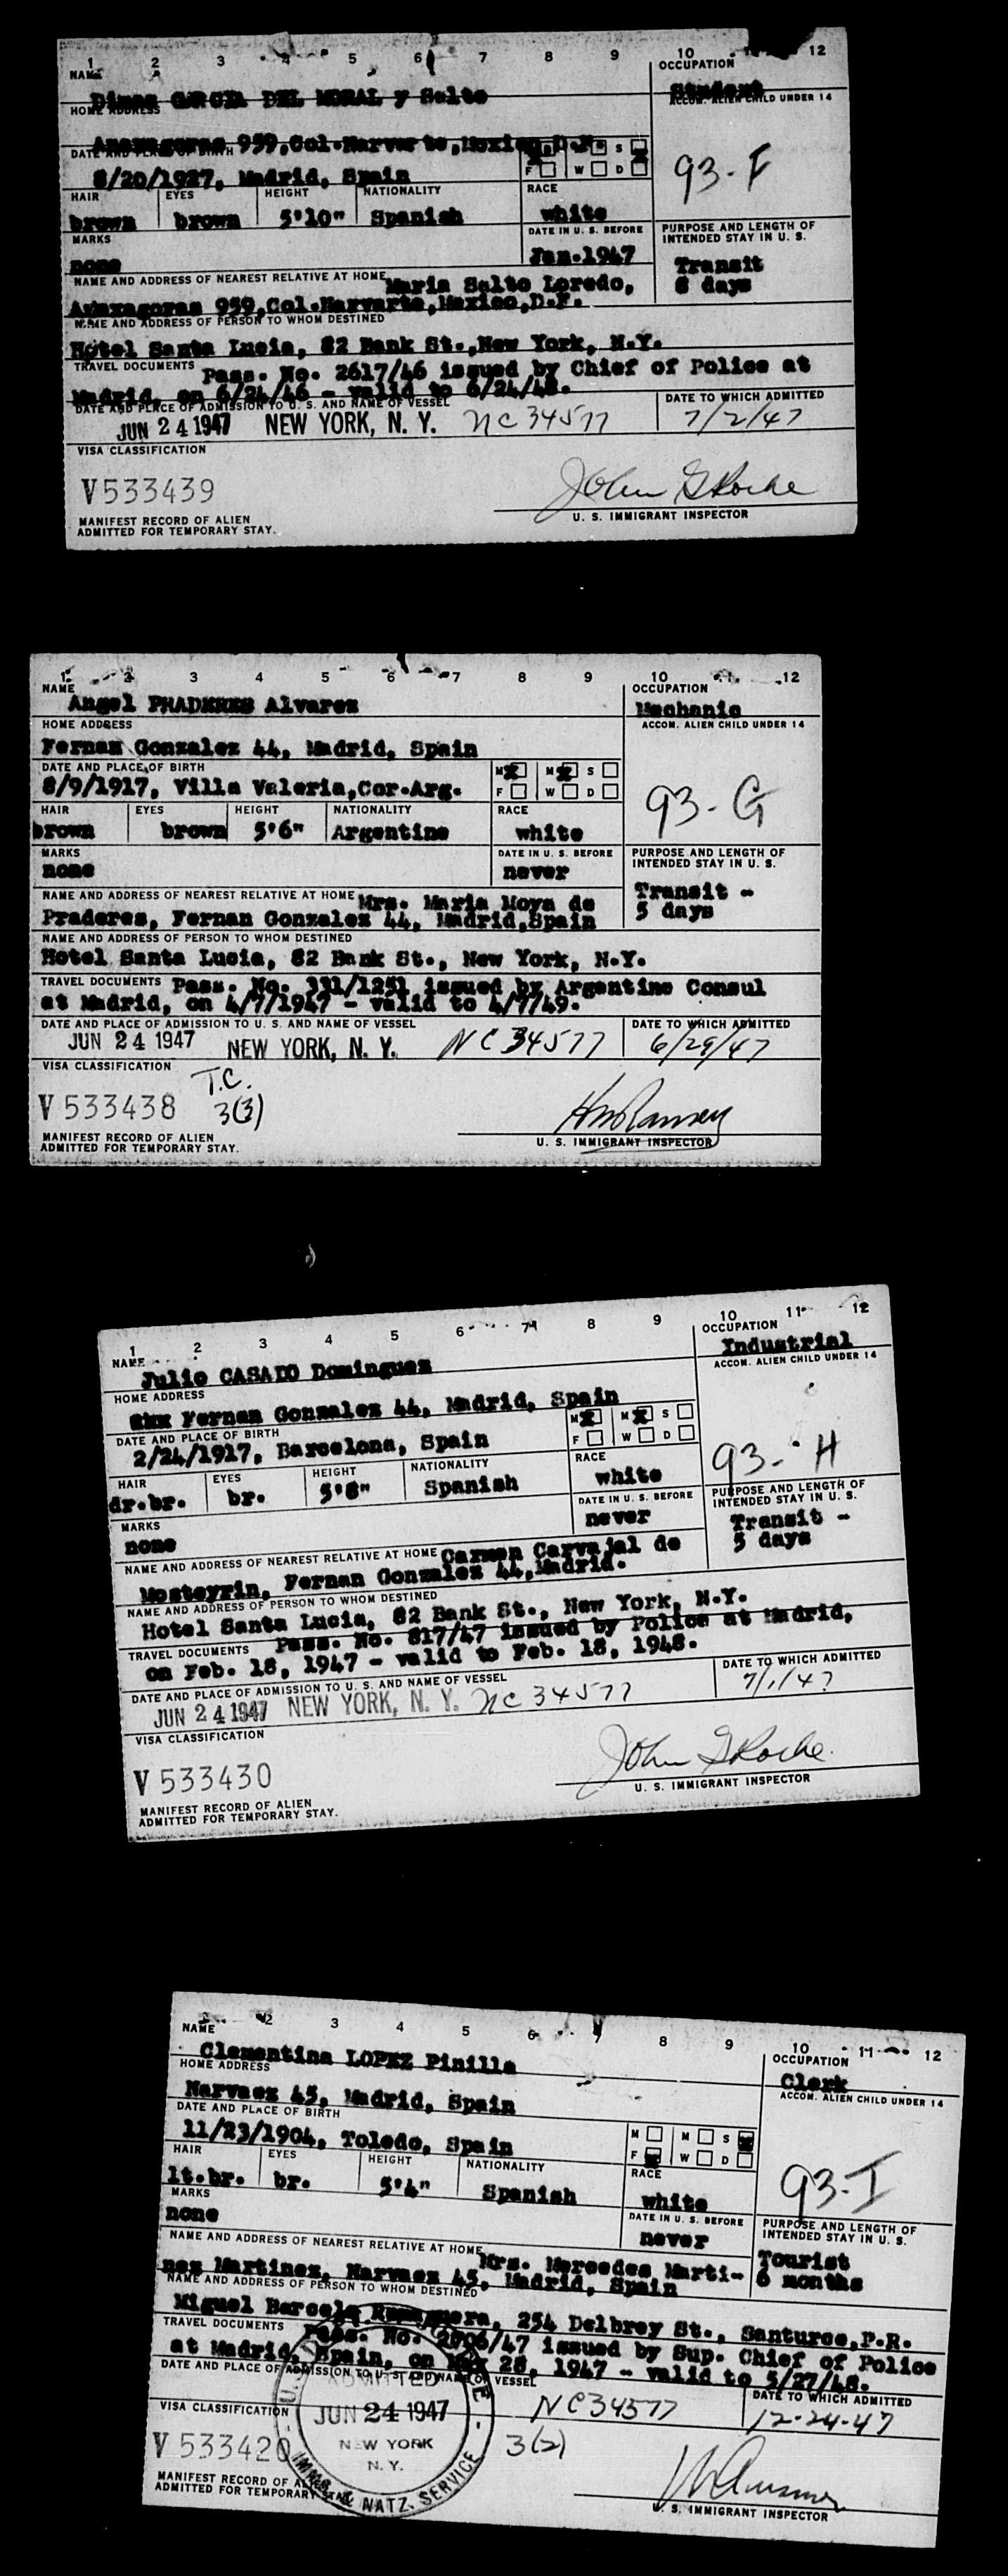 1 2 3 4 5 6 7 8 9 10 12
NAME OCCUPATION
Dimas GARCIA DEL MORAL y Salto Student
HOME ADDRESS ACCOM. ALIEN CHILD UNDER 14
959, Col. Narvarte, Mexico, D.F.
DATE AND PLACE OF BIRTH F W D S
8/20/1927, Madrid, Spain 93-F
HAIR EYES HEIGHT NATIONALITY RACE
brown brown 5'10" Spanish white
MARKS DATE IN U. S. BEFORE PURPOSE AND LENGTH OF INTENDED STAY IN U. S.
none Jan. 1947 Transit
NAME AND ADDRESS OF NEAREST RELATIVE AT HOME Maria Salto Loredo, 8 days
959, Col. Narvarte, Mexico, D.F.
NAME AND ADDRESS OF PERSON TO WHOM DESTINED
Hotel Santa Lucia, 82 Bank St., New York, N.Y.
TRAVEL DOCUMENTS Pass. No. 2617/46 issued by Chief of Police at
Madrid, on 6/24/46 - valid to 6/24/48.
DATE AND PLACE OF ADMISSION TO U. S. AND NAME OF VESSEL DATE TO WHICH ADMITTED
JUN 24 1947 NEW YORK, N. Y. NC 34577 7/2/47
VISA CLASSIFICATION
V533439 John G Roche
MANIFEST RECORD OF ALIEN U. S. IMMIGRANT INSPECTOR
ADMITTED FOR TEMPORARY STAY.
1 2 3 4 5 6 7 8 9 10 11 12
NAME OCCUPATION
Angel PRADERES Alvarez Mechanic
HOME ADDRESS ACCOM. ALIEN CHILD UNDER 14
Fernan Gonzalez 44, Madrid, Spain
DATE AND PLACE OF BIRTH M M S
8/9/1917, Villa Valeria, Cor. Arg. F W D 93-G
HAIR EYES HEIGHT NATIONALITY RACE
brown brown 5'6" Argentine white
MARKS DATE IN U. S. BEFORE PURPOSE AND LENGTH OF INTENDED STAY IN U. S.
none never Transit -
NAME AND ADDRESS OF NEAREST RELATIVE AT HOME Mrs. Maria Moya de 5 days
Praderes, Fernan Gonzalez 44, Madrid, Spain
NAME AND ADDRESS OF PERSON TO WHOM DESTINED
Hotel Santa Lucia, 82 Bank St., New York, N.Y.
TRAVEL DOCUMENTS Pass. No. 331/1251 issued by Argentine Consul
at Madrid, on 4/7/1947 - valid to 4/7/49.
DATE AND PLACE OF ADMISSION TO U. S. AND NAME OF VESSEL DATE TO WHICH ADMITTED
JUN 24 1947 NEW YORK, N. Y. NC 34577 6/29/47
VISA CLASSIFICATION T.C.
V 533438 3(3)
MANIFEST RECORD OF ALIEN U. S. IMMIGRANT INSPECTOR
ADMITTED FOR TEMPORARY STAY.
1 2 3 4 5 6 7 8 9 10 11 12
NAME OCCUPATION
Julio CASADO Dominguez Industrial
HOME ADDRESS ACCOM. ALIEN CHILD UNDER 14
Fernan Gonzalez 44, Madrid, Spain
DATE AND PLACE OF BIRTH M M S
2/24/1917, Barcelona, Spain F W D 93-H
HAIR EYES HEIGHT NATIONALITY RACE
dr.br. br. 5'8" Spanish white
MARKS DATE IN U. S. BEFORE PURPOSE AND LENGTH OF INTENDED STAY IN U. S.
none never Transit -
NAME AND ADDRESS OF NEAREST RELATIVE AT HOME Carmen Carvajal de 5 days
Mosteyrin, Fernan Gonzalez 44, Madrid.
NAME AND ADDRESS OF PERSON TO WHOM DESTINED
Hotel Santa Lucia, 82 Bank St., New York, N.Y.
TRAVEL DOCUMENTS Pass. No. 817/47 issued by Police at Madrid,
on Feb. 18, 1947 - valid to Feb. 18, 1948.
DATE AND PLACE OF ADMISSION TO U. S. AND NAME OF VESSEL DATE TO WHICH ADMITTED
JUN 24 1947 NEW YORK, N. Y. NC 34577 7/1/47
VISA CLASSIFICATION
V 533430 John G Roche
MANIFEST RECORD OF ALIEN U. S. IMMIGRANT INSPECTOR
ADMITTED FOR TEMPORARY STAY.
2 3 4 5 6 7 8 9 10 11 12
NAME OCCUPATION
Clementina LOPEZ Pinilla Clerk
HOME ADDRESS ACCOM. ALIEN CHILD UNDER 14
Narvaez 45, Madrid, Spain
DATE AND PLACE OF BIRTH M M S
11/23/1904, Toledo, Spain F W D 93-I
HAIR EYES HEIGHT NATIONALITY RACE
lt.br. br. 5'4" Spanish white
MARKS DATE IN U. S. BEFORE PURPOSE AND LENGTH OF INTENDED STAY IN U. S.
none never Tourist
NAME AND ADDRESS OF NEAREST RELATIVE AT HOME Mrs. Mercedes Marti- 6 months
nez Martinez, Narvaez 45, Madrid, Spain
NAME AND ADDRESS OF PERSON TO WHOM DESTINED
Miguel Barcelo 254 Delbrey St., Santurce, P.R.
TRAVEL DOCUMENTS Pass. No. 2906/47 issued by Sup. Chief of Police
at Madrid, Spain, on May 28, 1947 - valid to 5/27/48.
DATE AND PLACE OF ADMISSION TO U. S. AND NAME OF VESSEL DATE TO WHICH ADMITTED
ADMITTED JUN 24 1947 NEW YORK N. Y. IMMIG. & NATZ. SERVICE NC34577 12-24-47
VISA CLASSIFICATION
V 533420 3(2)
MANIFEST RECORD OF ALIEN U. S. IMMIGRANT INSPECTOR
ADMITTED FOR TEMPORARY STAY.